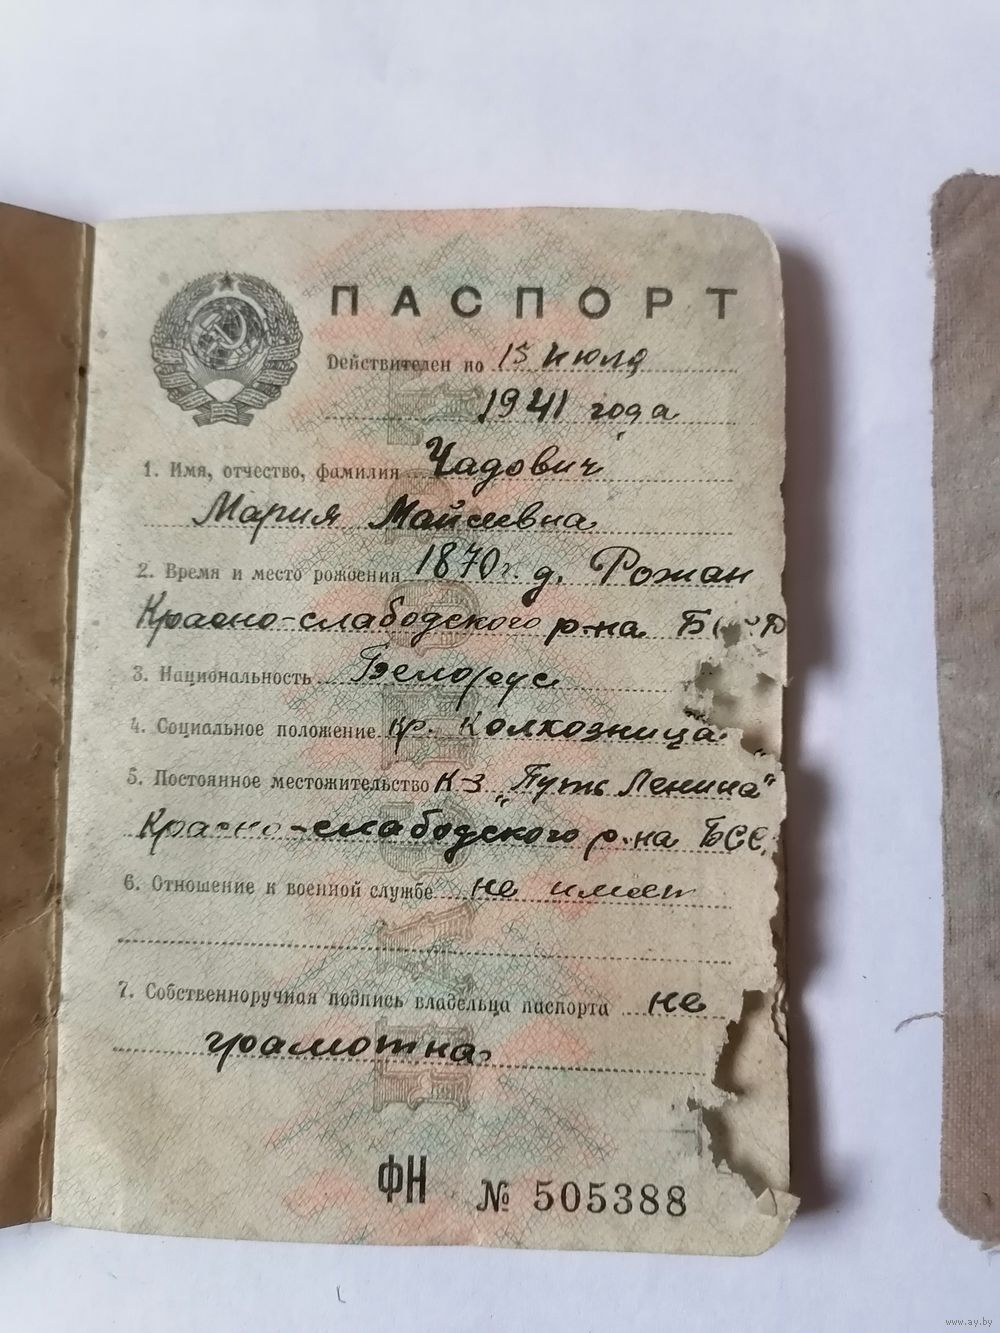 ПАСПОРТ
Действителен по 15 июля
1941 года
1. Имя, отчество, фамилия Чадович
Мария Майсеевна
2. Время и место рождения 1870 г. д. Рожан
Красно-слабодского р-на
3. Национальность Белорус
4. Социальное положение кр. Колхозница
5. Постоянное местожительство К-з "Путь Ленина"
Красно-слабодского р-на БСС
6. Отношение к военной службе не имеет
7. Собственноручная подпись владельца паспорта не
грамотна
ФН № 505388
www.ay.by